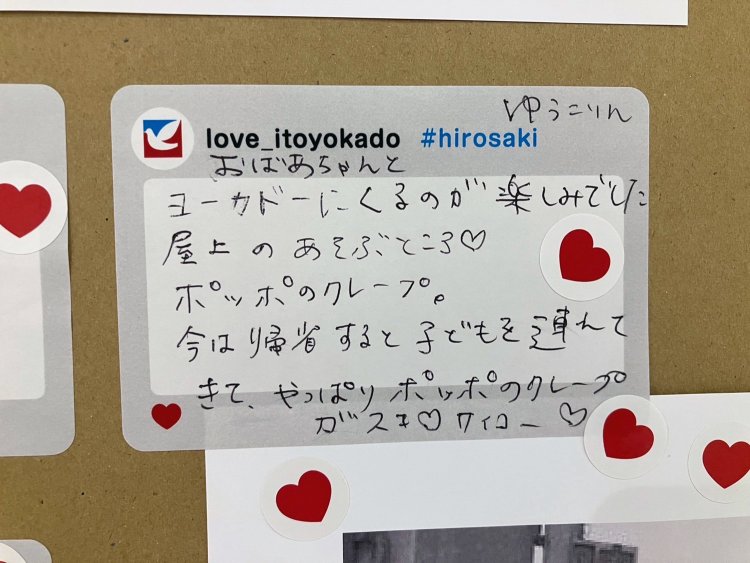 ゆうこりん
love_itoyokado #hirosaki
おばあちゃんと
ヨーカドーにくるのが楽しみでした
屋上のあそぶところ♡
ポッポのクレープ。
今は帰省すると子どもを連れて
きて、やっぱりポッポのクレープ
♡ ♡